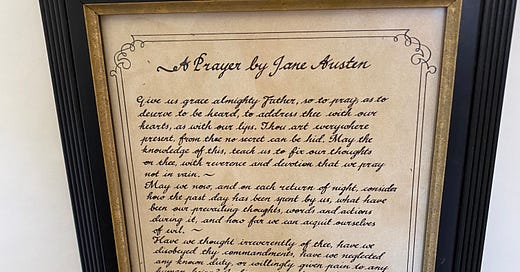 A Prayer by Jane Austen
Give us grace almighty Father, so to pray, as to
deserve to be heard, to address thee with our
hearts, as with our lips. Thou art everywhere
present, from thee no secret can be hid. May the
knowledge of this, teach us to fix our thoughts
on thee, with reverence and devotion that we pray
not in vain. ~
May we now, and on each return of night, consider
how the past day has been spent by us, what have
been our prevailing thoughts, words and actions
during it, and how far we can acquit ourselves
of evil. ~
Have we thought irreverently of thee, have we
disobeyed thy commandments, have we neglected
any known duty, or willingly given pain to any